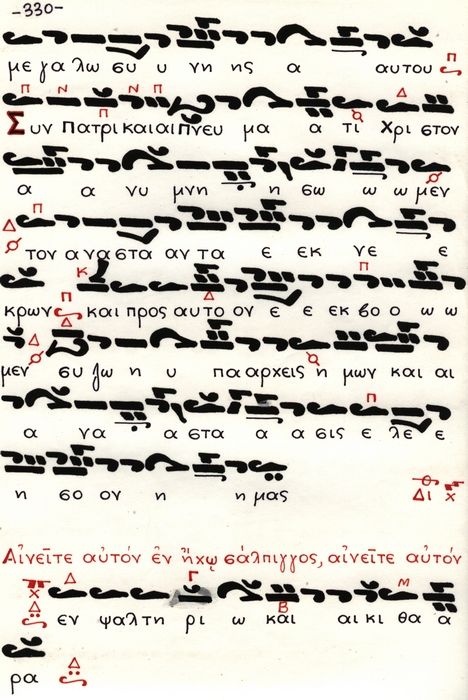 -330-
με γα λω συ υ νη ης α αυτου
Συν Πατρι και αι Πνευ μα α τι Χρι στον
α α νυ μνη η σω ω ω μεν
τον ανα στα αν τα ε εκ νε ε
κρων και προς αυτο ον ε ε εκ βο ο ω ω
μεν συ ζω η υ πα αρχεις η μων και αι
α να α στα α α σις ε λε ε
η σο ον η η μας
Αἰνεῖτε αὐτόν ἐν ἤχῳ σάλπιγγος, αἰνεῖτε αὐτόν
εν ψαλτη ρι ω και αι κι θα α
ρα